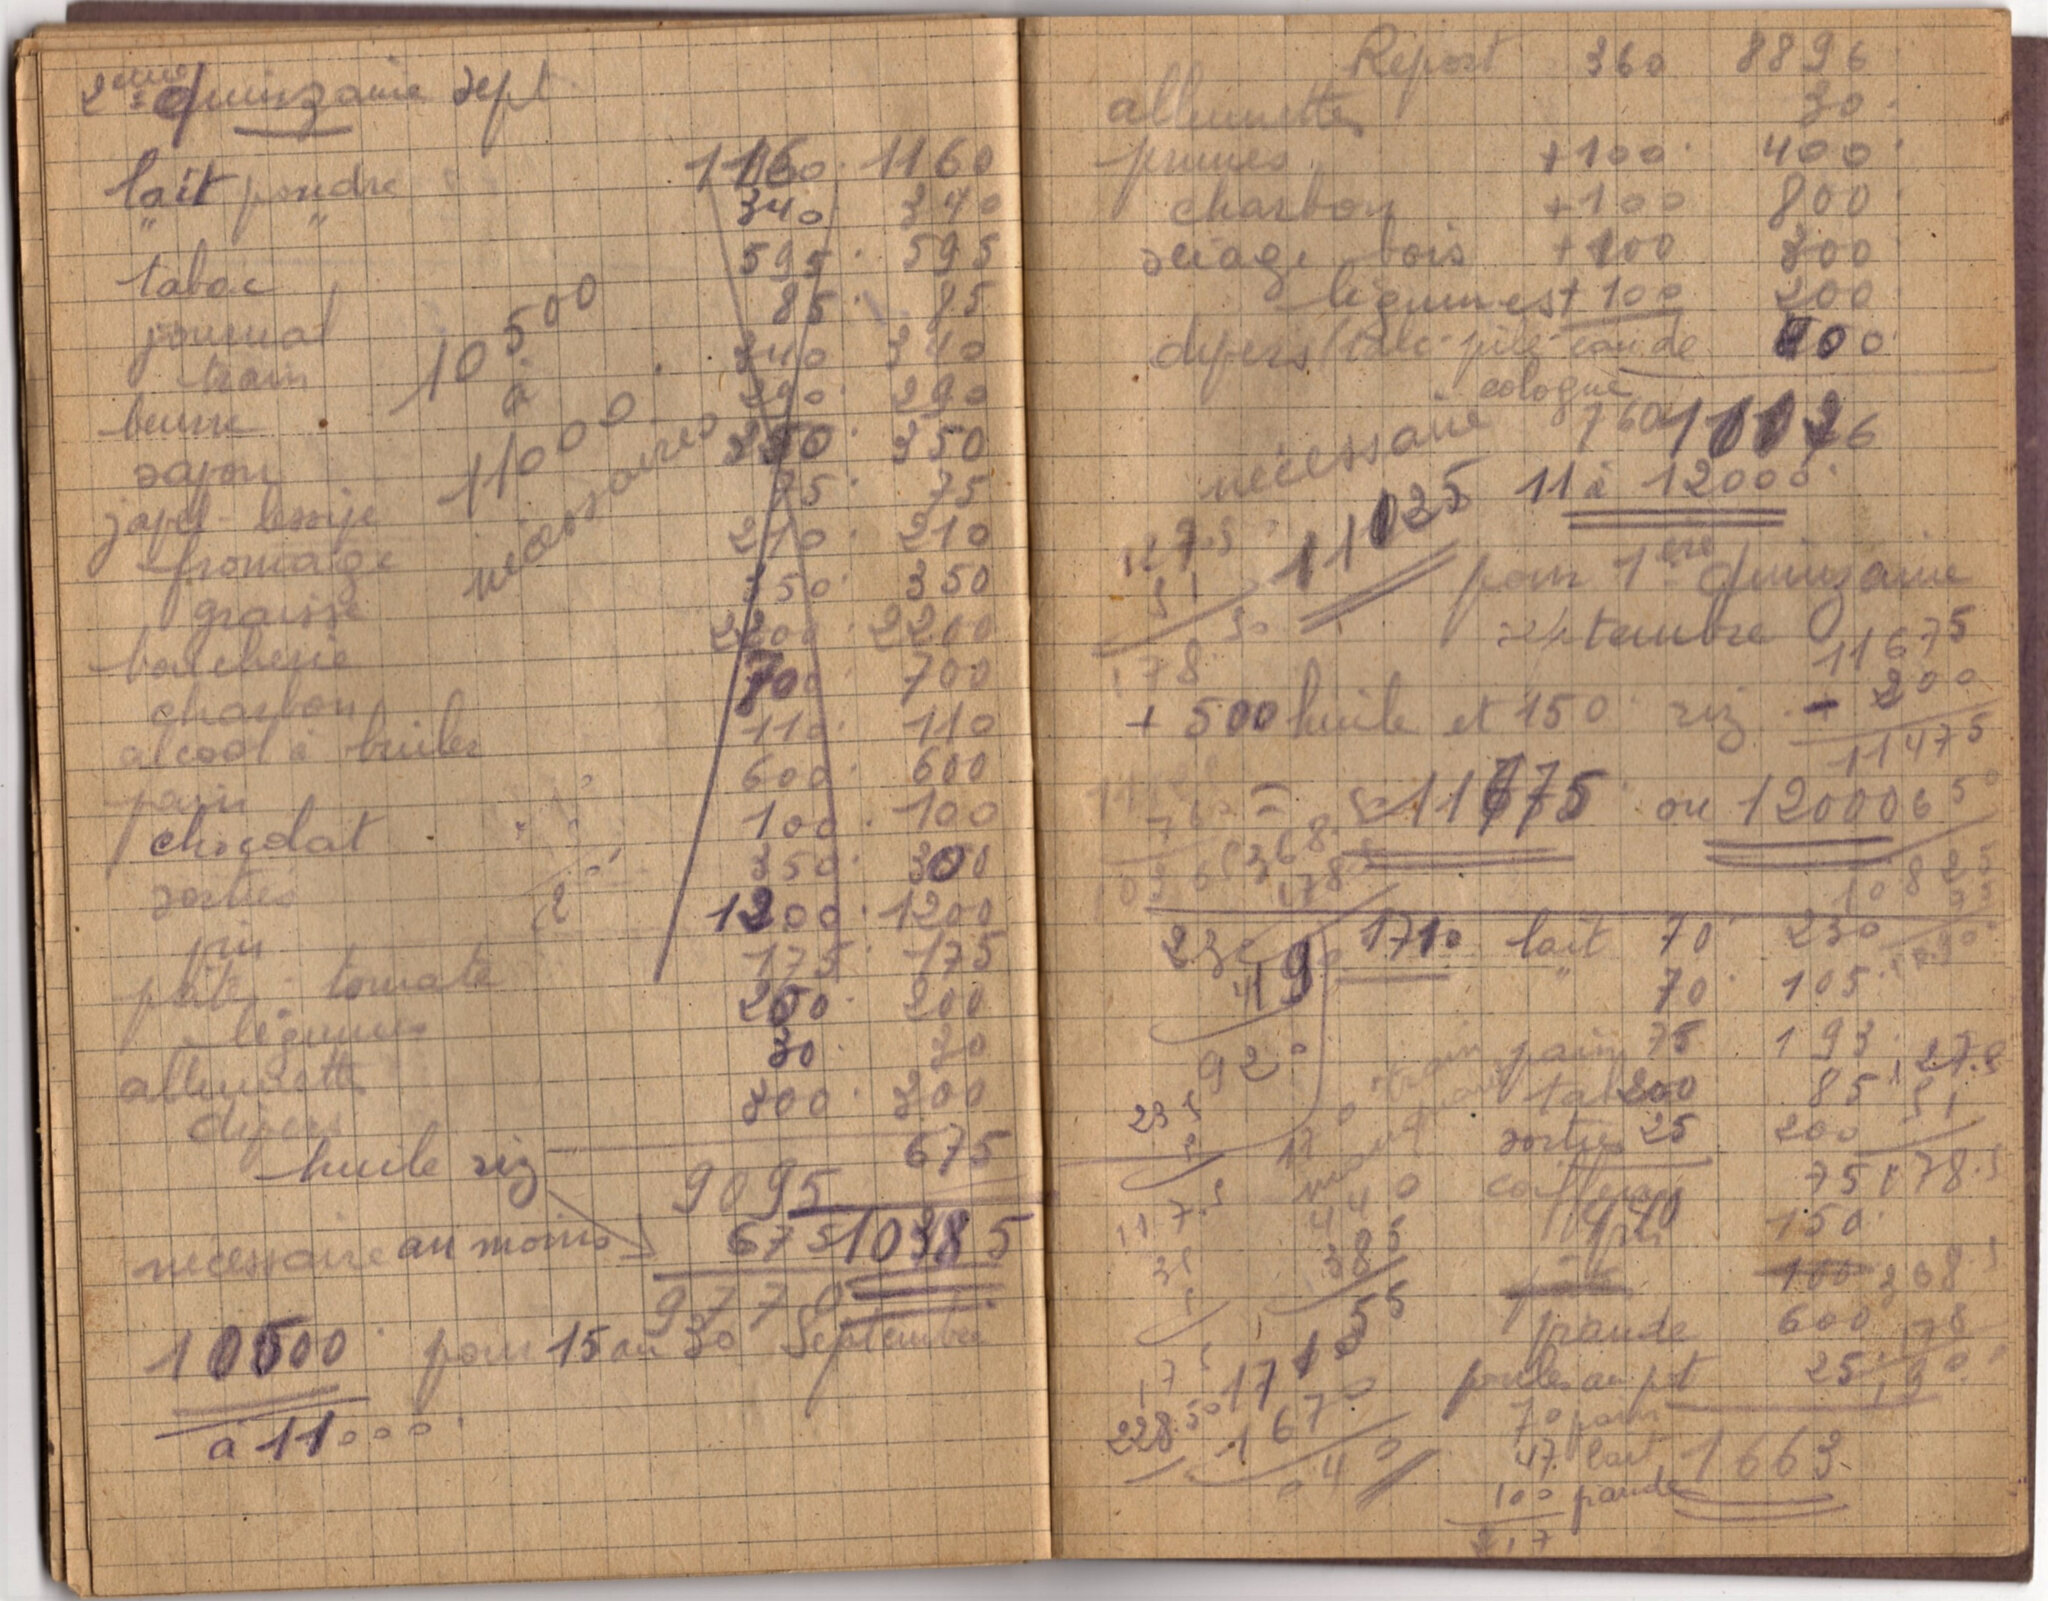 2ème quinzaine sept
lait poudre 1160 1160
" " 340 340
tabac 595 595
journal 85 85
train 340 340
beurre 290 290
savon 350 350
javel-lessive 75 75
fromage 210 210
graisse 350 350
boucherie 2200 2200
charbon 700 700
alcool à bruler 110 110
pain 600 600
chocolat 100 100
sorties 350 300
pin 1200 1200
pâtes - tomate 175 175
légumes 200 200
allumettes 30 30
divers 300 300
huile riz 675
10500
à
11000
nécessaires
9095
nécessaire au moins 675 10385
9770
10500 pour 15 au 30 Septembre
à 11000
Report 360 8896
allumettes 30
prunes +100 400
charbon +100 800
sciage bois +100 300
légumes +100 200
divers (talc-pile-eau de cologne 400
nécessaire 760 11026
11025 11 à 12000
127.5
51
178 50
pour 1ère quinzaine
septembre
11675
+ 500 huile et 150 riz - 200
11475
= 11675 ou 12000
650
10825
1710 lait 70 230
" 70 105
pain 75 193
tabac 200 85
sorties 25 200
coiffeur 75
150
100
viande 600
poules au pot 25
1663
127.5
51
178.5
368.5
178
190
920
235
117.5
35
175
228.50
440
385
55
1710
1670
040
70 pain
47 lait
100 viande
217